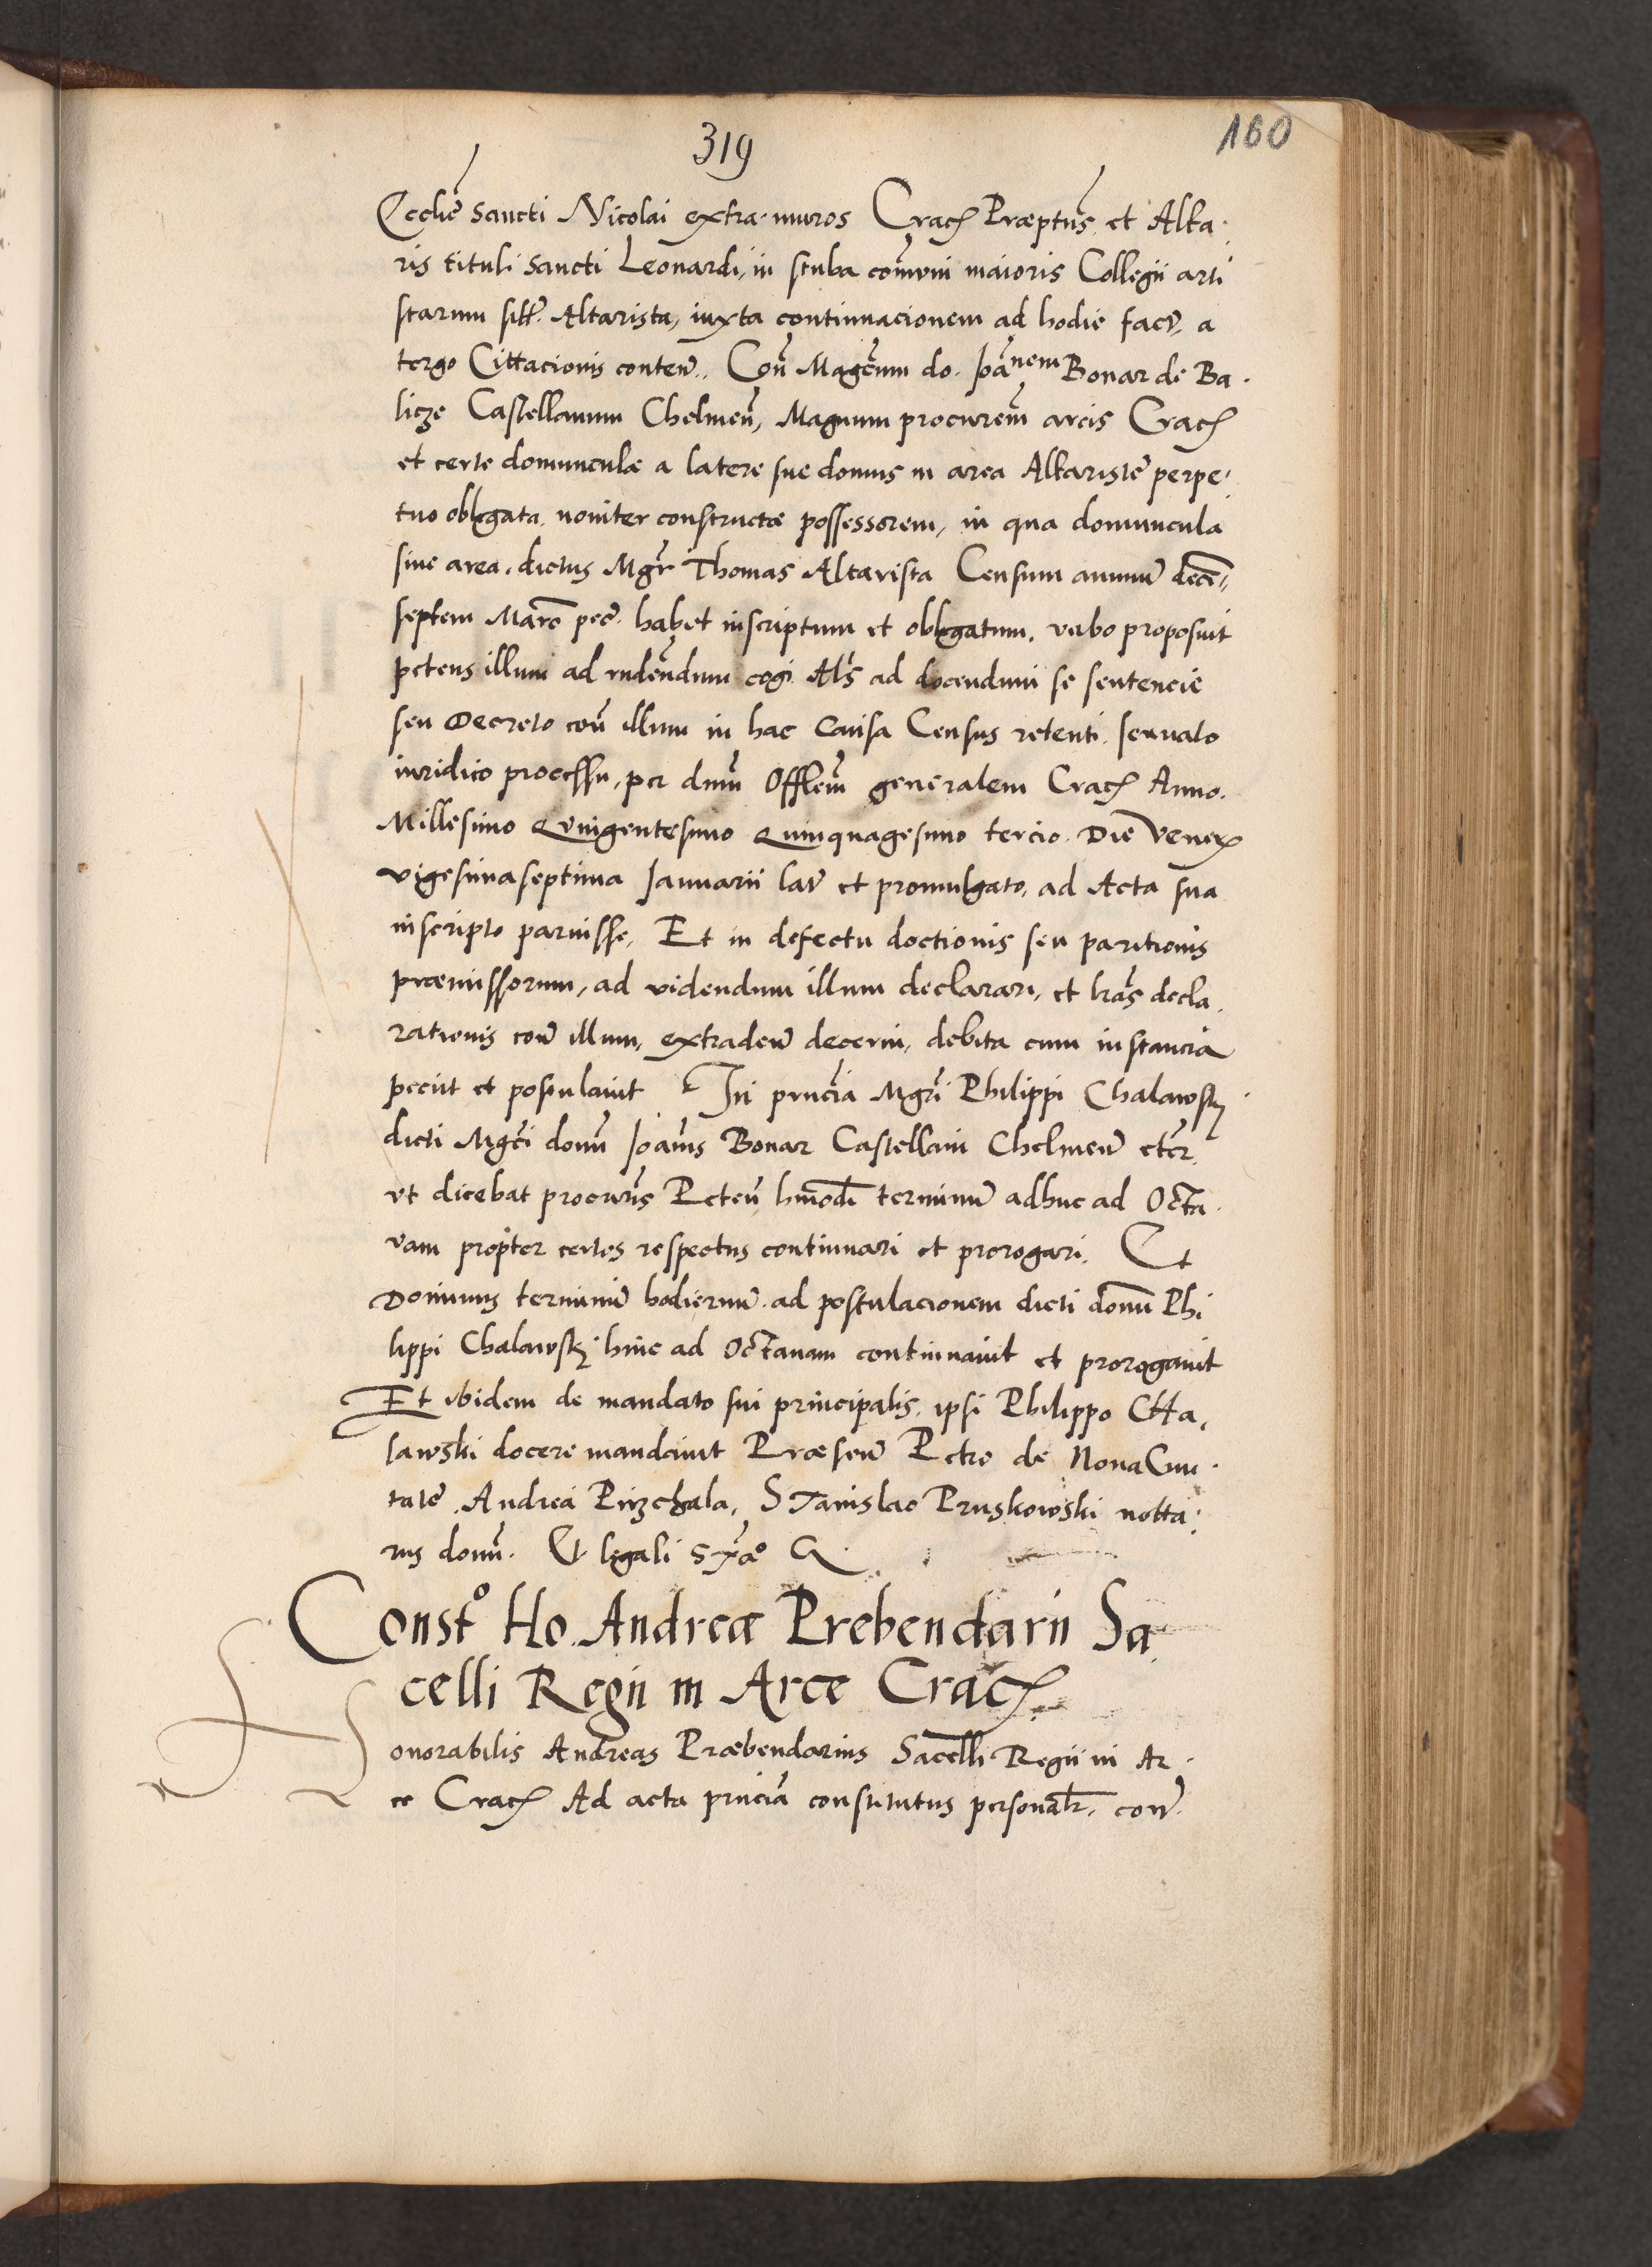 319
160
Ecclīe Sancti Nicolai extra muros Crac̄ Præptūs et Alta
ris tituli Sancti Leonardi, in stuba com̄uni maioris Collegii arti
starum siłr Altarista, iuxta continuacionem ad hodie fact̄, a
tergo Cittacionis conten̄. Con̄ Magc̄um do. Joānem Bonar de Ba
licze Castellanum Chelmen̄, Magnum procurem̄ arcis Crac̄
et certe domunculæ a latere sue domus in area Altaristē perpe
tuo obligata, noviter constructæ possessorem, in qua domuncula
sive area, dictus Mgr̄ Thomas Altarista Censum annuū decē
septem Marc̄ pec̄ habet inscriptum et obligatum, verbo proposuit
petens illum ad rnden̄dum cogi. Al̄s ad docendum se sentencie
seu Decreto con̄ illum in hac Causa Census retenti, servato
iuridico processu, per dnūm Offlem̄ generalem Crac̄ Anno.
Millesimo Quingentesimo Quinquagesimo tercio. Die Vener̄
vigesimaseptima Januarii lat̄ et promulgato, ad Acta sua
inscripto paruisse, Et in defectu doctionis seu paritionis
præmissorum, ad videndum illum declarari, et lrās decla
rationis con̄ illum, extraden̄ decerni, debita cum instancia
peciit et postulavit In prn̄cia Mgrī Philippi Chalawsky
dicti Mgc̄i domī Joānis Bonar Castellani Chelmen̄ etc̄r
ut dicebat procurīs Peten̄ hmōdī terminū adhuc ad Octa
vam propter certos respectus continuari et prorogari. Et
Dominus terminū hodiernū ad postulacionem dicti domī Phi
lippi Chalawsky hinc ad Octavam continuavit et prorogavit
Et ibidem de mandato sui principalis, ipsi Philippo Cha
lawski docere mandavit Præsen̄ Petro de Nova Civi
tate, Andrea Przchala, Stanislao Pruskowski notta
riis domī. Et legali
Constō Ho. Andreæ Prebendarii Sa
celli Regii in Arce Crac̄
Honorabilis Andreas Præbendarius Sacelli Regii in Ar
ce Crac̄ Ad acta prn̄ciā constitutus personalr̄, con̄